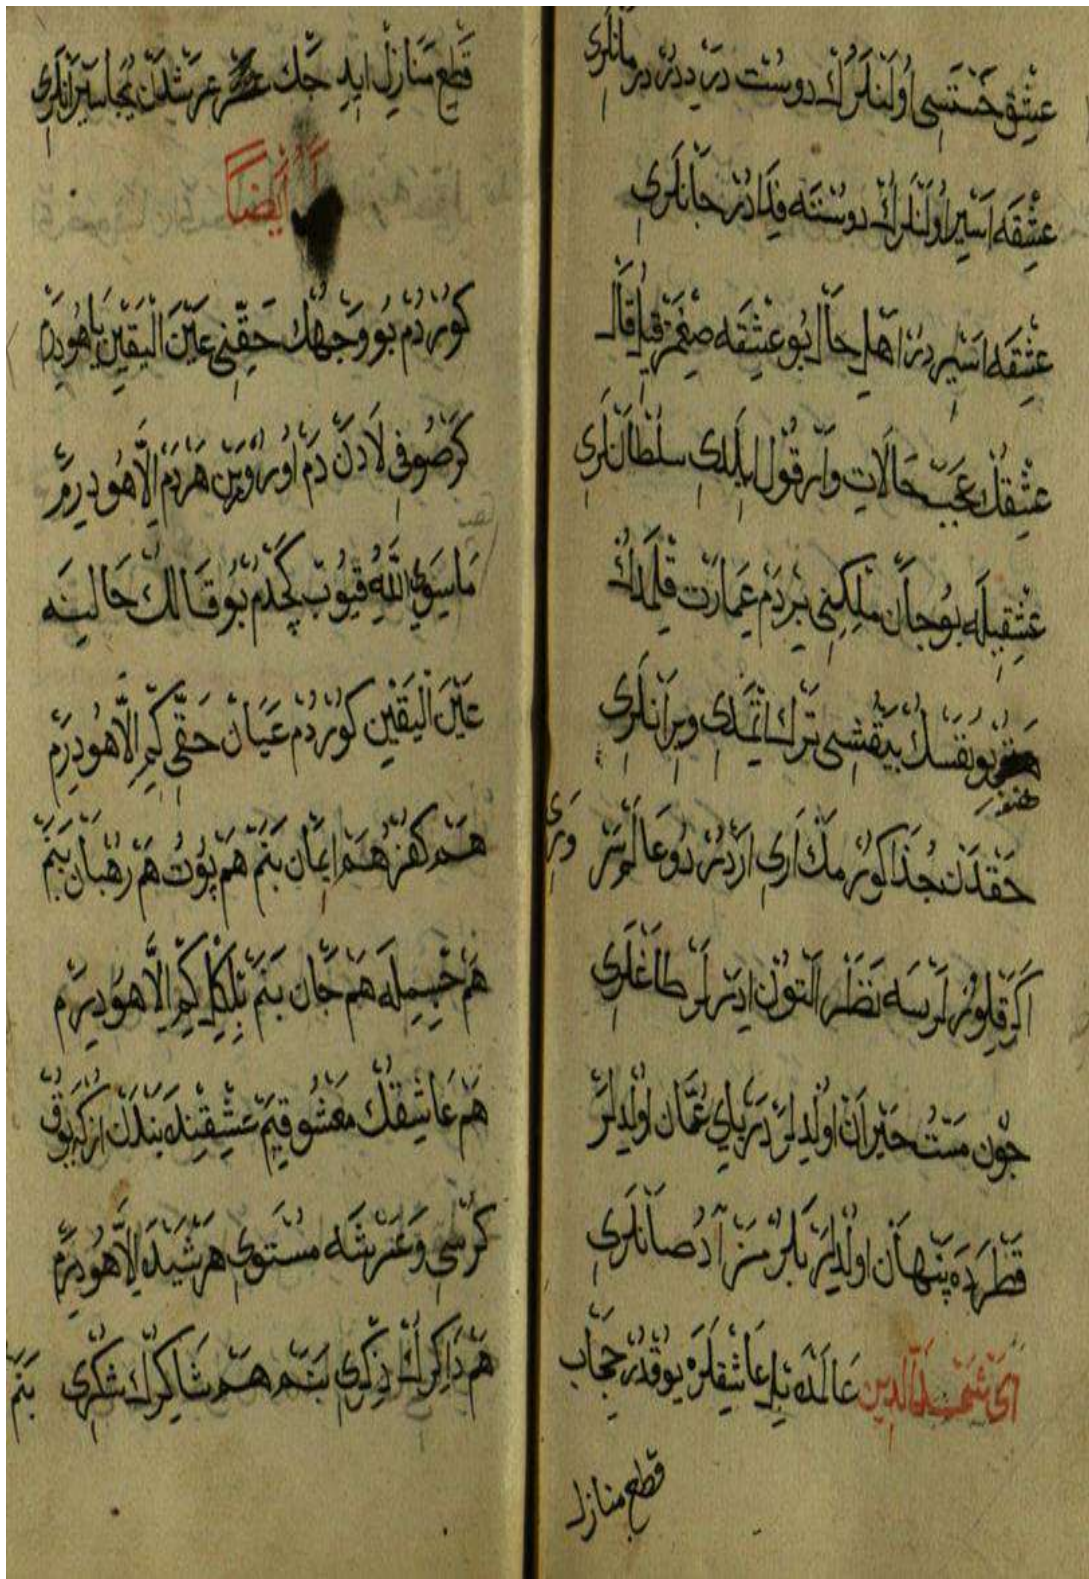 عشق خستسی اولنلرك دوست دردیدر درمانلری
عشقه اسیر اولنلرك دوستنه فدادر جانلری
عشقه اسیردر اهل حال بو عشقه صغمز قیل قال
عشقك عجب حالات وار قول ایلدی سلطانلری
عشقیله بو جان ملكنی بردم عمارت قلمدك
هنوز بو نفسك بیقشی ترك اتمدی ویرانلری
هنوز
حقدن جدا كورمك اری اردر دو عالم
اكر قلورلرسه نظر التون ایدرلر طاغلری
چون مست حیران اولدلر دریای عمان اولدلر
قطره ده پنهان اولدلر بلرمز آد صانلری
ای شمس الدین عالمده بل عاشقلره یوقدر حجاب
قطع منازل
قطع منازل ایده جك عرشدن یجا سیرانلری
ایضا
كوردم بو وجهك حقنی عین الیقین یا هو دیرم
كر صوفی لادن دم اورر بن هردم الا هو دیرم
ما سوی الله قیوب كچدم بو قالك حالینه
عین الیقین كوردم عیان حقی كم الا هو دیرم
هم كفر هم ایمان بنم هم پوت هم رهبان بنم
هم جسمله هم جان بنم بلكل كم الا هو دیرم
هم عاشقك معشوقیم عشقنده بندن ارك یوق
كرسی و عرشه مستوی هر شیده الا هو دیرم
هم ذاكرك ذكری بنم هم شاكرك شكری بنم